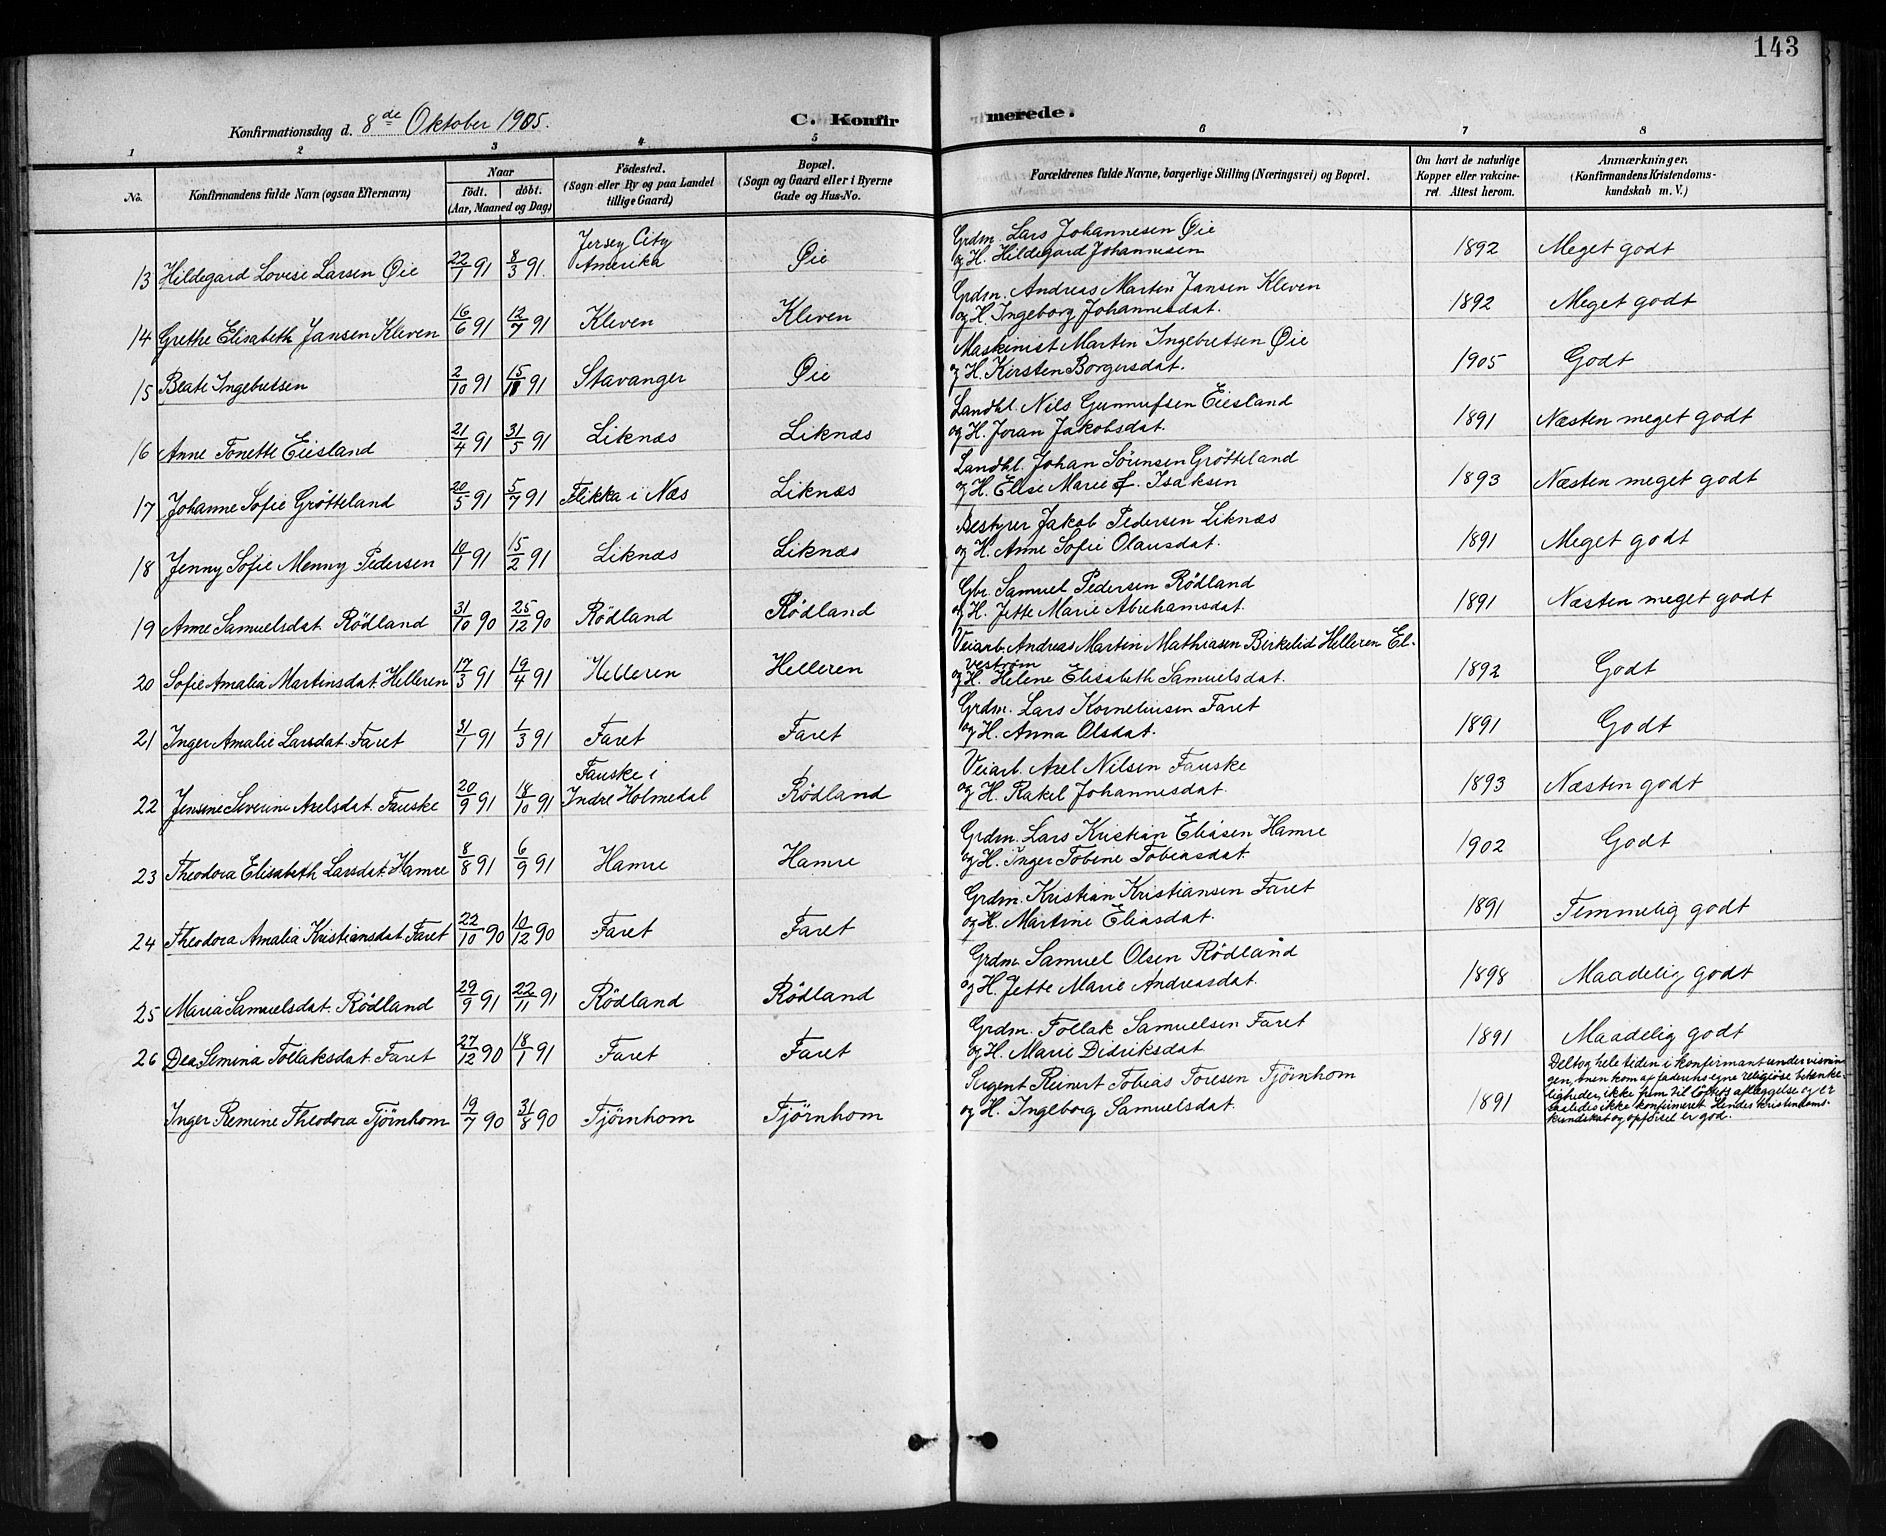 143
Konfirmationsdag d. 8de Oktober 1905.
C. Konfirmerede.
1 2 3 4 5 6 7 8
No. Konfirmandens fulde Navn (ogsaa Efternavn) Naar födt. döbt. (Aar, Maaned og Dag) Födested. (Sogn eller By og paa Landet tillige Gaard) Bopæl. (Sogn og Gaard eller i Byerne Gade og Hus-No. Forældrenes fulde Navne, borgerlige Stilling (Næringsvei) og Bopæl. Om havt de naturlige Kopper eller vakcineret. Attest herom. Anmærkninger. (Konfirmandens Kristendomskundskab m. V.)
13 Hildegard Lovise Larsen Øie 22/7 91 8/3 91. Jersey City Amerika Øie Grdm. Lars Johannesen Øie
og H. Hildegard Johannesen 1892 Meget godt
14 Grethe Elisabeth Jansen Kleven 16/6 91 12/7 91 Kleven Kleven Grdm. Andreas Marten Jansen Kleven
og H. Ingeborg Johannesdat. 1892 Meget godt
15 Beate Ingebretsen 2/10 91 15/11 91 Stavanger Øie Maskinist Marten Ingebretsen Øie
og H. Kirsten Borgersdat. 1905 Godt
16 Anne Tonette Eiesland 21/4 91 31/5 91 Liknæs Liknæs Landhl. Nils Gunnufsen Eiesland
og H. Joran Jakobsdat. 1891 Næsten meget godt
17 Johanne Sofie Grötteland 20/5 91 5/7 91 Flikka i Næs Liknæs Landhl. Johan Sörensen Grötteland
og H. Elise Marie f. Isaksen 1893 Næsten meget godt
18 Jenny Sofie Menny Pedersen 10/1 91 15/2 91 Liknæs Liknæs Bestyrer Jakob Pedersen Liknæs
og H. Anne Sofie Olausdat. 1891 Meget godt
19 Anne Samuelsdat. Rödland 31/10 90 25/12 90 Rödland Rödland Gbr. Samuel Pedersen Rödland
og H. Jette Marie Abrahamsdat. 1891 Næsten meget godt
20 Sofie Amalia Martinsdat. Helleren 17/3 91 19/4 91 Helleren Helleren Veiarb. Andreas Martin Mathiasen Birkelid Helleren El-
vestrøm
og H. Helene Elisabeth Samuelsdat. 1892 Godt
21 Inger Amalie Larsdat. Faret 31/1 91 1/3 91 Faret Faret Grdm. Lars Korneliussen Faret
og H. Anna Olsdat. 1891 Godt
22 Jensine Severine Axelsdat. Fauske 20/9 91 18/10 91 Fauske i Indre Holmedal Rödland Veiarb. Axel Nilsen Fauske
og H. Rakel Johannesdat. 1893 Næsten godt
23 Theodora Elisabeth Larsdat. Hamre 8/8 91 6/9 91 Hamre Hamre Grdm. Lars Kristian Eliasen Hamre
og H. Inger Tobine Tobiasdat. 1902 Godt
24 Theodora Amalia Kristiansdat. Faret 22/10 90 10/12 90 Faret Faret Grdm. Kristian Kristiansen Faret
og H. Martine Eliasdat. 1891 Temmelig godt
25 Maria Samuelsdat. Rödland 29/9 91 22/11 91 Rödland Rödland Grdm. Samuel Olsen Rödland
og H. Jette Marie Andreasdat. 1898 Maadelig godt
26 Dea Semina Tollaksdat. Faret 27/12 90 18/1 91 Faret Faret Grdm. Tollak Samuelsen Faret
og H. Marie Didriksdat. 1891 Maadelig godt
Inger Remine Theodora Tjörnhom 19/7 90 31/8 90 Tjörnhom Tjörnhom Sergent Reinert Tobias Toresen Tjörnhom
og H. Ingeborg Samuelsdat. 1891
Deltog hele tiden i konfirmantundervisnin-
gen, men kom af faderens egne religiöse betænke-
ligheder, ikke frem til löftets aflæggelse og er
saaledes ikke konfirmeret. Hendes kristendoms-
kundskab og opförsel er god.